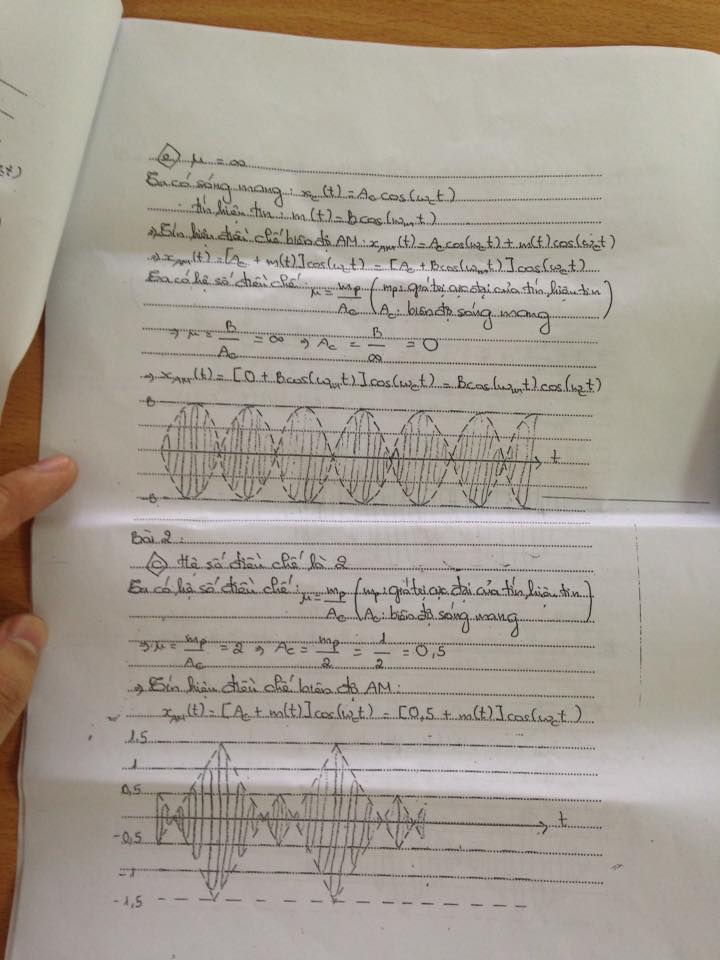 e) μ = ∞
Ta có sóng mang: x_c(t) = A_c cos(ω_c t)
tín hiệu tin: m(t) = B cos(ω_m t)
⇒ Tín hiệu điều chế biên độ AM: x_AM(t) = A_c cos(ω_c t) + m(t) cos(ω_c t)
⇒ x_AM(t) = [A_c + m(t)] cos(ω_c t) = [A_c + B cos(ω_m t)] cos(ω_c t)
Ta có hệ số điều chế: μ = m_p / A_c (m_p: giá trị cực đại của tín hiệu tin
A_c: biên độ sóng mang)
⇒ μ = B / A_c = ∞ ⇒ A_c = B / ∞ = 0
⇒ x_AM(t) = [0 + B cos(ω_m t)] cos(ω_c t) = B cos(ω_m t) cos(ω_c t)
B
t
-B
Bài 2:
c) Hệ số điều chế là 2
Ta có hệ số điều chế: μ = m_p / A_c (m_p: giá trị cực đại của tín hiệu tin
A_c: biên độ sóng mang)
⇒ μ = m_p / A_c = 2 ⇒ A_c = m_p / 2 = 1 / 2 = 0,5
⇒ Tín hiệu điều chế biên độ AM:
x_AM(t) = [A_c + m(t)] cos(ω_c t) = [0,5 + m(t)] cos(ω_c t)
1,5
1
0,5
t
-0,5
-1
-1,5